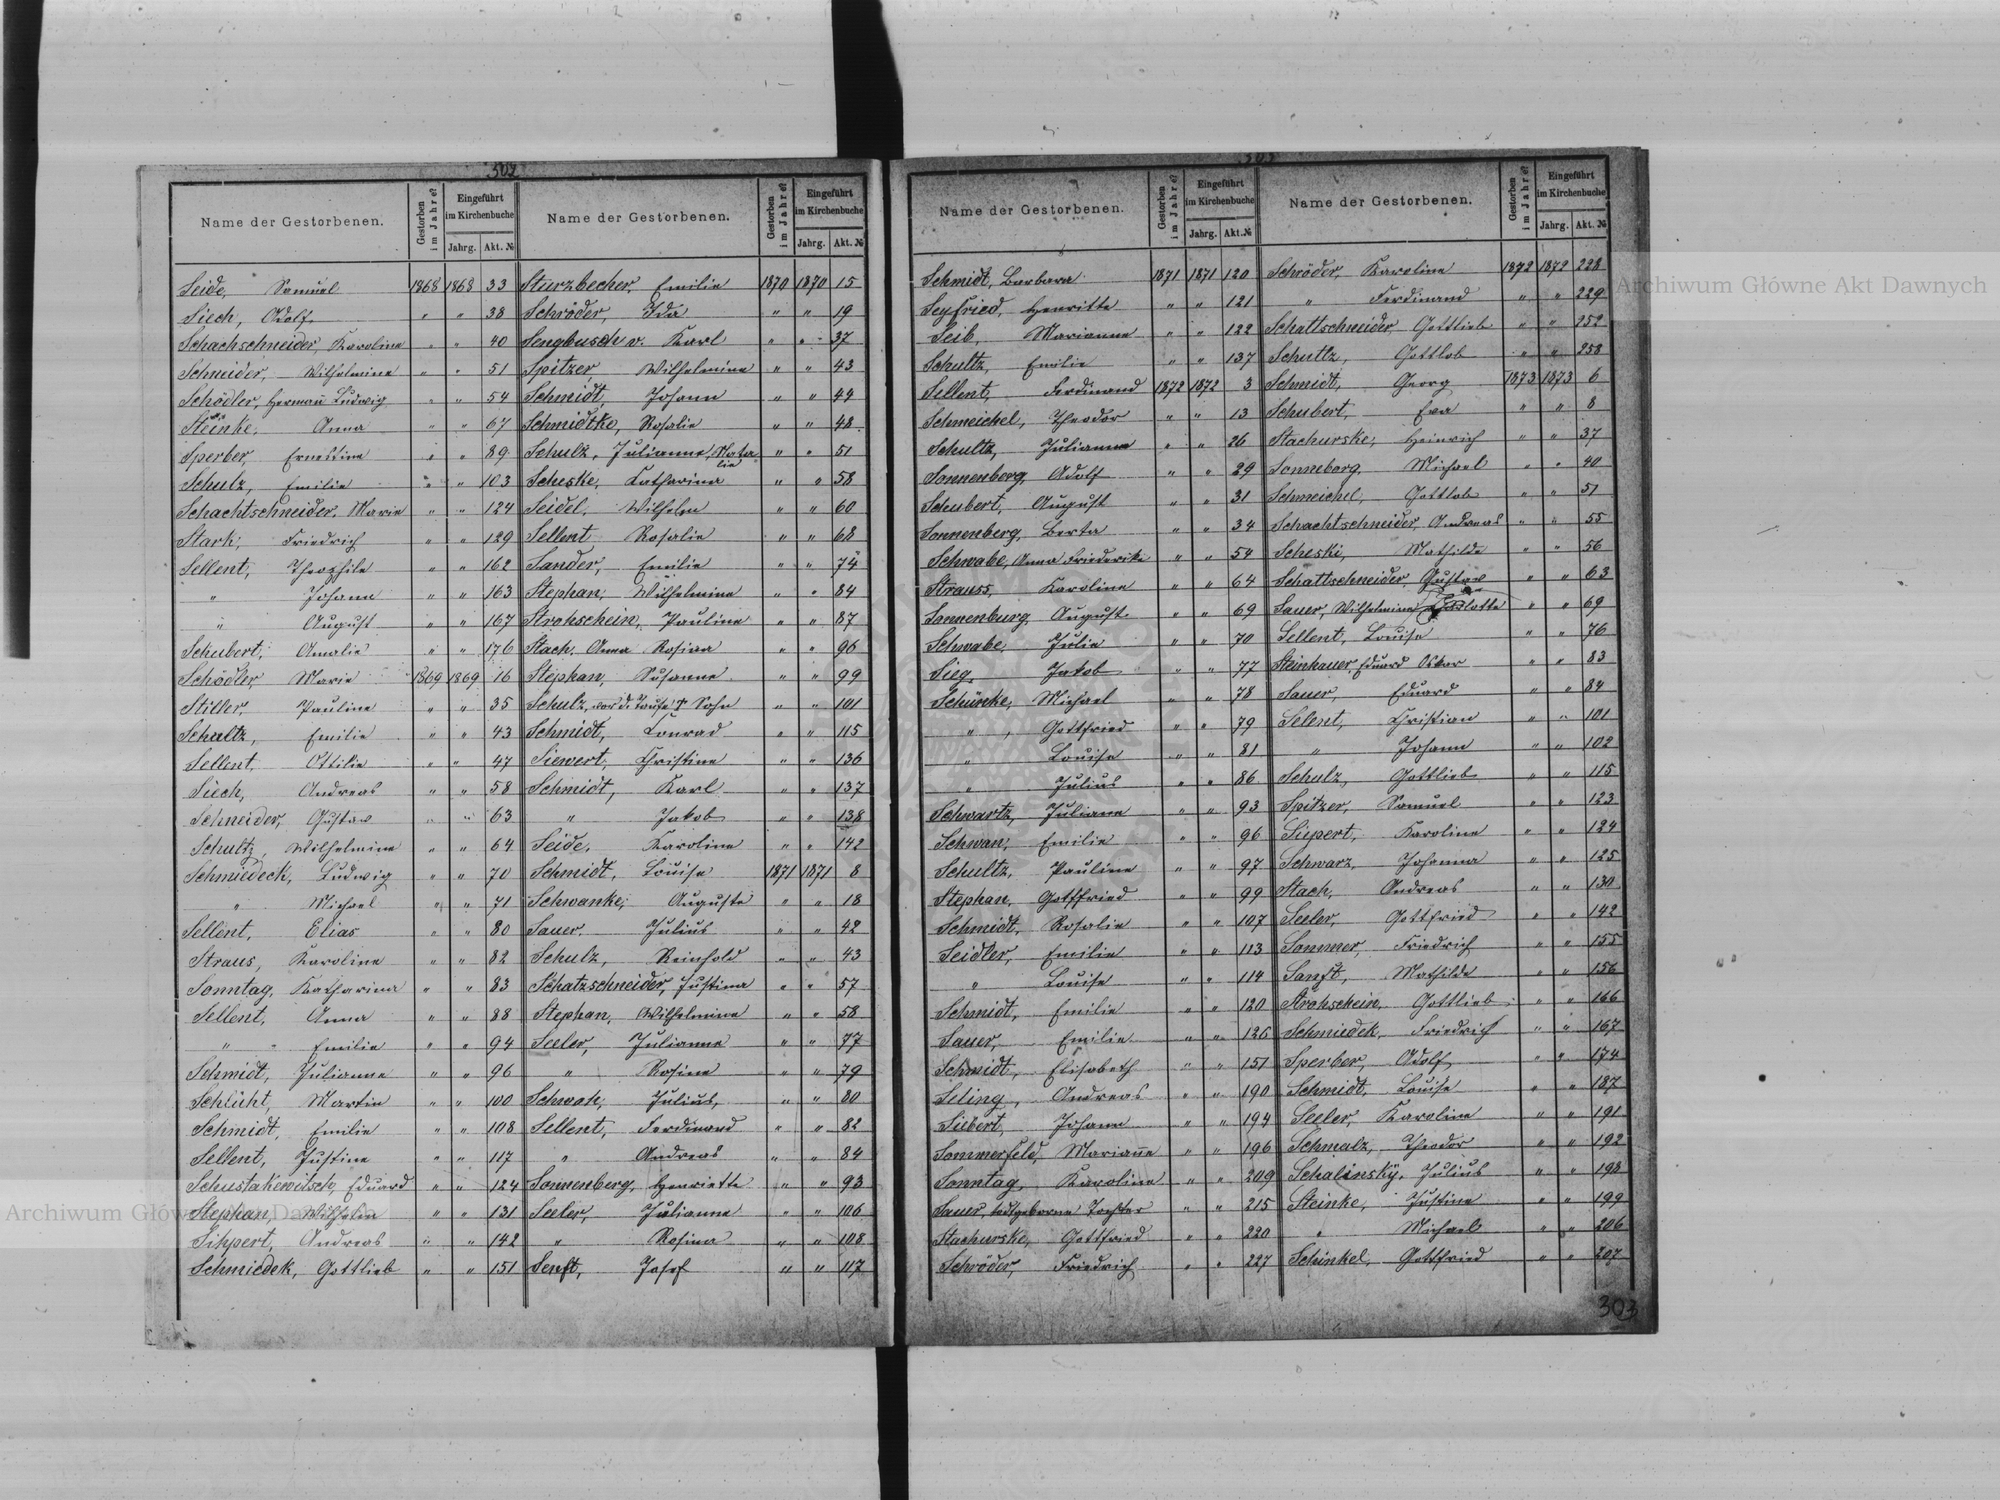 302
Name der Gestorbenen. Gestorben im Jahre? Eingeführt im Kirchenbuche Jahrg. Akt. №
Seide, Samuel 1868 1868 33
Siech, Adolf " " 38
Schachschneider, Karoline " " 40
Schneider, Wilhelmine " " 51
Schödler, Herman Ludwig " " 54
Steinke, Anna " " 67
Sperber, Ernestine " " 89
Schulz, Emilie " " 103
Schachtschneider, Marie " " 124
Stark, Friedrich " " 129
Sellent, Theophile " " 162
" Johann " " 163
" August " " 167
Schubert, Amalie " " 176
Schödler, Marie 1869 1869 16
Stiller, Pauline " " 35
Schultz, Emilie " " 43
Sellent, Ottilie " " 47
Siech, Andreas " " 58
Schneider, Gustav " " 63
Schultz, Wilhelmine " " 64
Schmiedeck, Ludwig " " 70
" Michael " " 71
Sellent, Elias " " 80
Straus, Karoline " " 82
Sonntag, Katharina " " 83
Sellent, Anna " " 88
" Emilie " " 94
Schmidt, Julianne " " 96
Schlicht, Martin " " 100
Schmidt, Emilie " " 108
Sellent, Justine " " 117
Schustakewitsch, Eduard " " 124
Stephan, Wilhelm " " 131
Sippert, Andreas " " 142
Schmiedek, Gottlieb " " 151
Name der Gestorbenen. Gestorben im Jahre? Eingeführt im Kirchenbuche Jahrg. Akt. №
Sturzbecher, Emilie 1870 1870 15
Schröder, Ida " " 19
Sengbusch v. Karl " " 37
Spitzer Wilhelmine " " 43
Schmidt, Johann " " 44
Schmidtke, Rosalie " " 48
Schulz, Julianne, Natalie " " 51
Scheske, Katharina " " 58
Seidel, Wilhelm " " 60
Sellent Rosalie " " 68
Sander, Emilie " " 74
Stephan, Wilhelmine " " 84
Strohschein, Pauline " " 87
Stach, Anna Rosina " " 96
Stephan, Susanna " " 99
Schulz, vor d. Taufe † Sohn " " 101
Schmidt, Conrad " " 115
Siewert, Christine " " 136
Schmidt, Karl " " 137
" Jakob " " 138
Seide, Karoline " " 142
Schmidt, Louise 1871 1871 8
Schwanke, Auguste " " 18
Sauer, Julius " " 42
Schulz, Reinhold " " 43
Schatzschneider, Justina " " 57
Stephan, Wilhelmine " " 58
Seeler, Julianne " " 77
" Rosine " " 79
Schwoch, Julius, " " 80
Sellent, Ferdinand " " 82
" Andreas " " 84
Sonnenberg, Henriette " " 93
Seeler, Julianna " " 106
" Rosina " " 108
Senft, Josef " " 117
303
Name der Gestorbenen. Gestorben im Jahre? Eingeführt im Kirchenbuche Jahrg. Akt. №
Schmidt, Barbara 1871 1871 120
Seyfried, Henriette " " 121
Seib, Marianne " " 122
Schultz, Emilie " " 137
Sellent, Ferdinand 1872 1872 3
Schmeichel, Theodor " " 13
Schultz, Julianne " " 26
Sonnenberg, Adolf " " 29
Schubert, August " " 31
Sonnenberg, Berta " " 34
Schwabe, Anna Friederike " " 54
Strauss, Karoline " " 64
Sonnenburg, August " " 69
Schwabe, Julie " " 70
Sieg, Jakob " " 77
Schünke, Michael " " 78
" , Gottfried " " 79
" Louise " " 81
" Julius " " 86
Schwartz, Juliane " " 93
Schwan, Emilie " " 96
Schultz, Pauline " " 97
Stephan, Gottfried " " 99
Schmidt, Rosalie " " 107
Seidler, Emilie " " 113
" Louise " " 114
Schmidt, Emilie " " 120
Sauer, Emilie " " 126
Schmidt, Elisabeth " " 151
Siling, Andreas " " 190
Siebert, Johann " " 194
Sommerfeld, Marianne " " 196
Sonntag, Karoline " " 209
Sauer, todtgeborne Tochter " " 215
Stachurske, Gottfried " " 220
Schröder, Friedrich " " 227
Name der Gestorbenen. Gestorben im Jahre? Eingeführt im Kirchenbuche Jahrg. Akt. №
Schröder, Karoline 1872 1872 228
" Ferdinand " " 229
Schattschneider, Gottlieb " " 252
Schultz, Gottlob " " 258
Schmidt, Georg 1873 1873 6
Schubert, Eva " " 8
Stachurske, Heinrich " " 37
Sonneborg, Michael " " 40
Schmeichel, Gottlob " " 51
Schachtschneider, Andreas " " 55
Scheski, Mathilde " " 56
Schattschneider, Gustav " " 63
Sauer, Wilhelmine " " 69
Sellent, Louise " " 76
Steinhauer, Eduard Oskar " " 83
Sauer, Eduard " " 84
Selent, Christian " " 101
" Johann " " 102
Schulz, Gottlieb " " 115
Spitzer, Samuel " " 123
Siepert, Karoline " " 124
Schwarz, Johanna " " 125
Stach, Andreas " " 130
Seeler, Gottfried " " 142
Sommer, Friedrich " " 155
Sanft, Mathilde " " 156
Strohschein, Gottlieb " " 166
Schmiedek, Friedrich " " 167
Sperber, Adolf " " 174
Schmidt, Louise " " 187
Seeler, Karoline " " 191
Schmalz, Theodor " " 192
Schalinsky, Julius " " 198
Steinke, Justine " " 199
" Michael " " 206
Schinkel, Gottfried " " 207
303
Archiwum Główne Akt Dawnych
Archiwum Główne Akt Dawnych